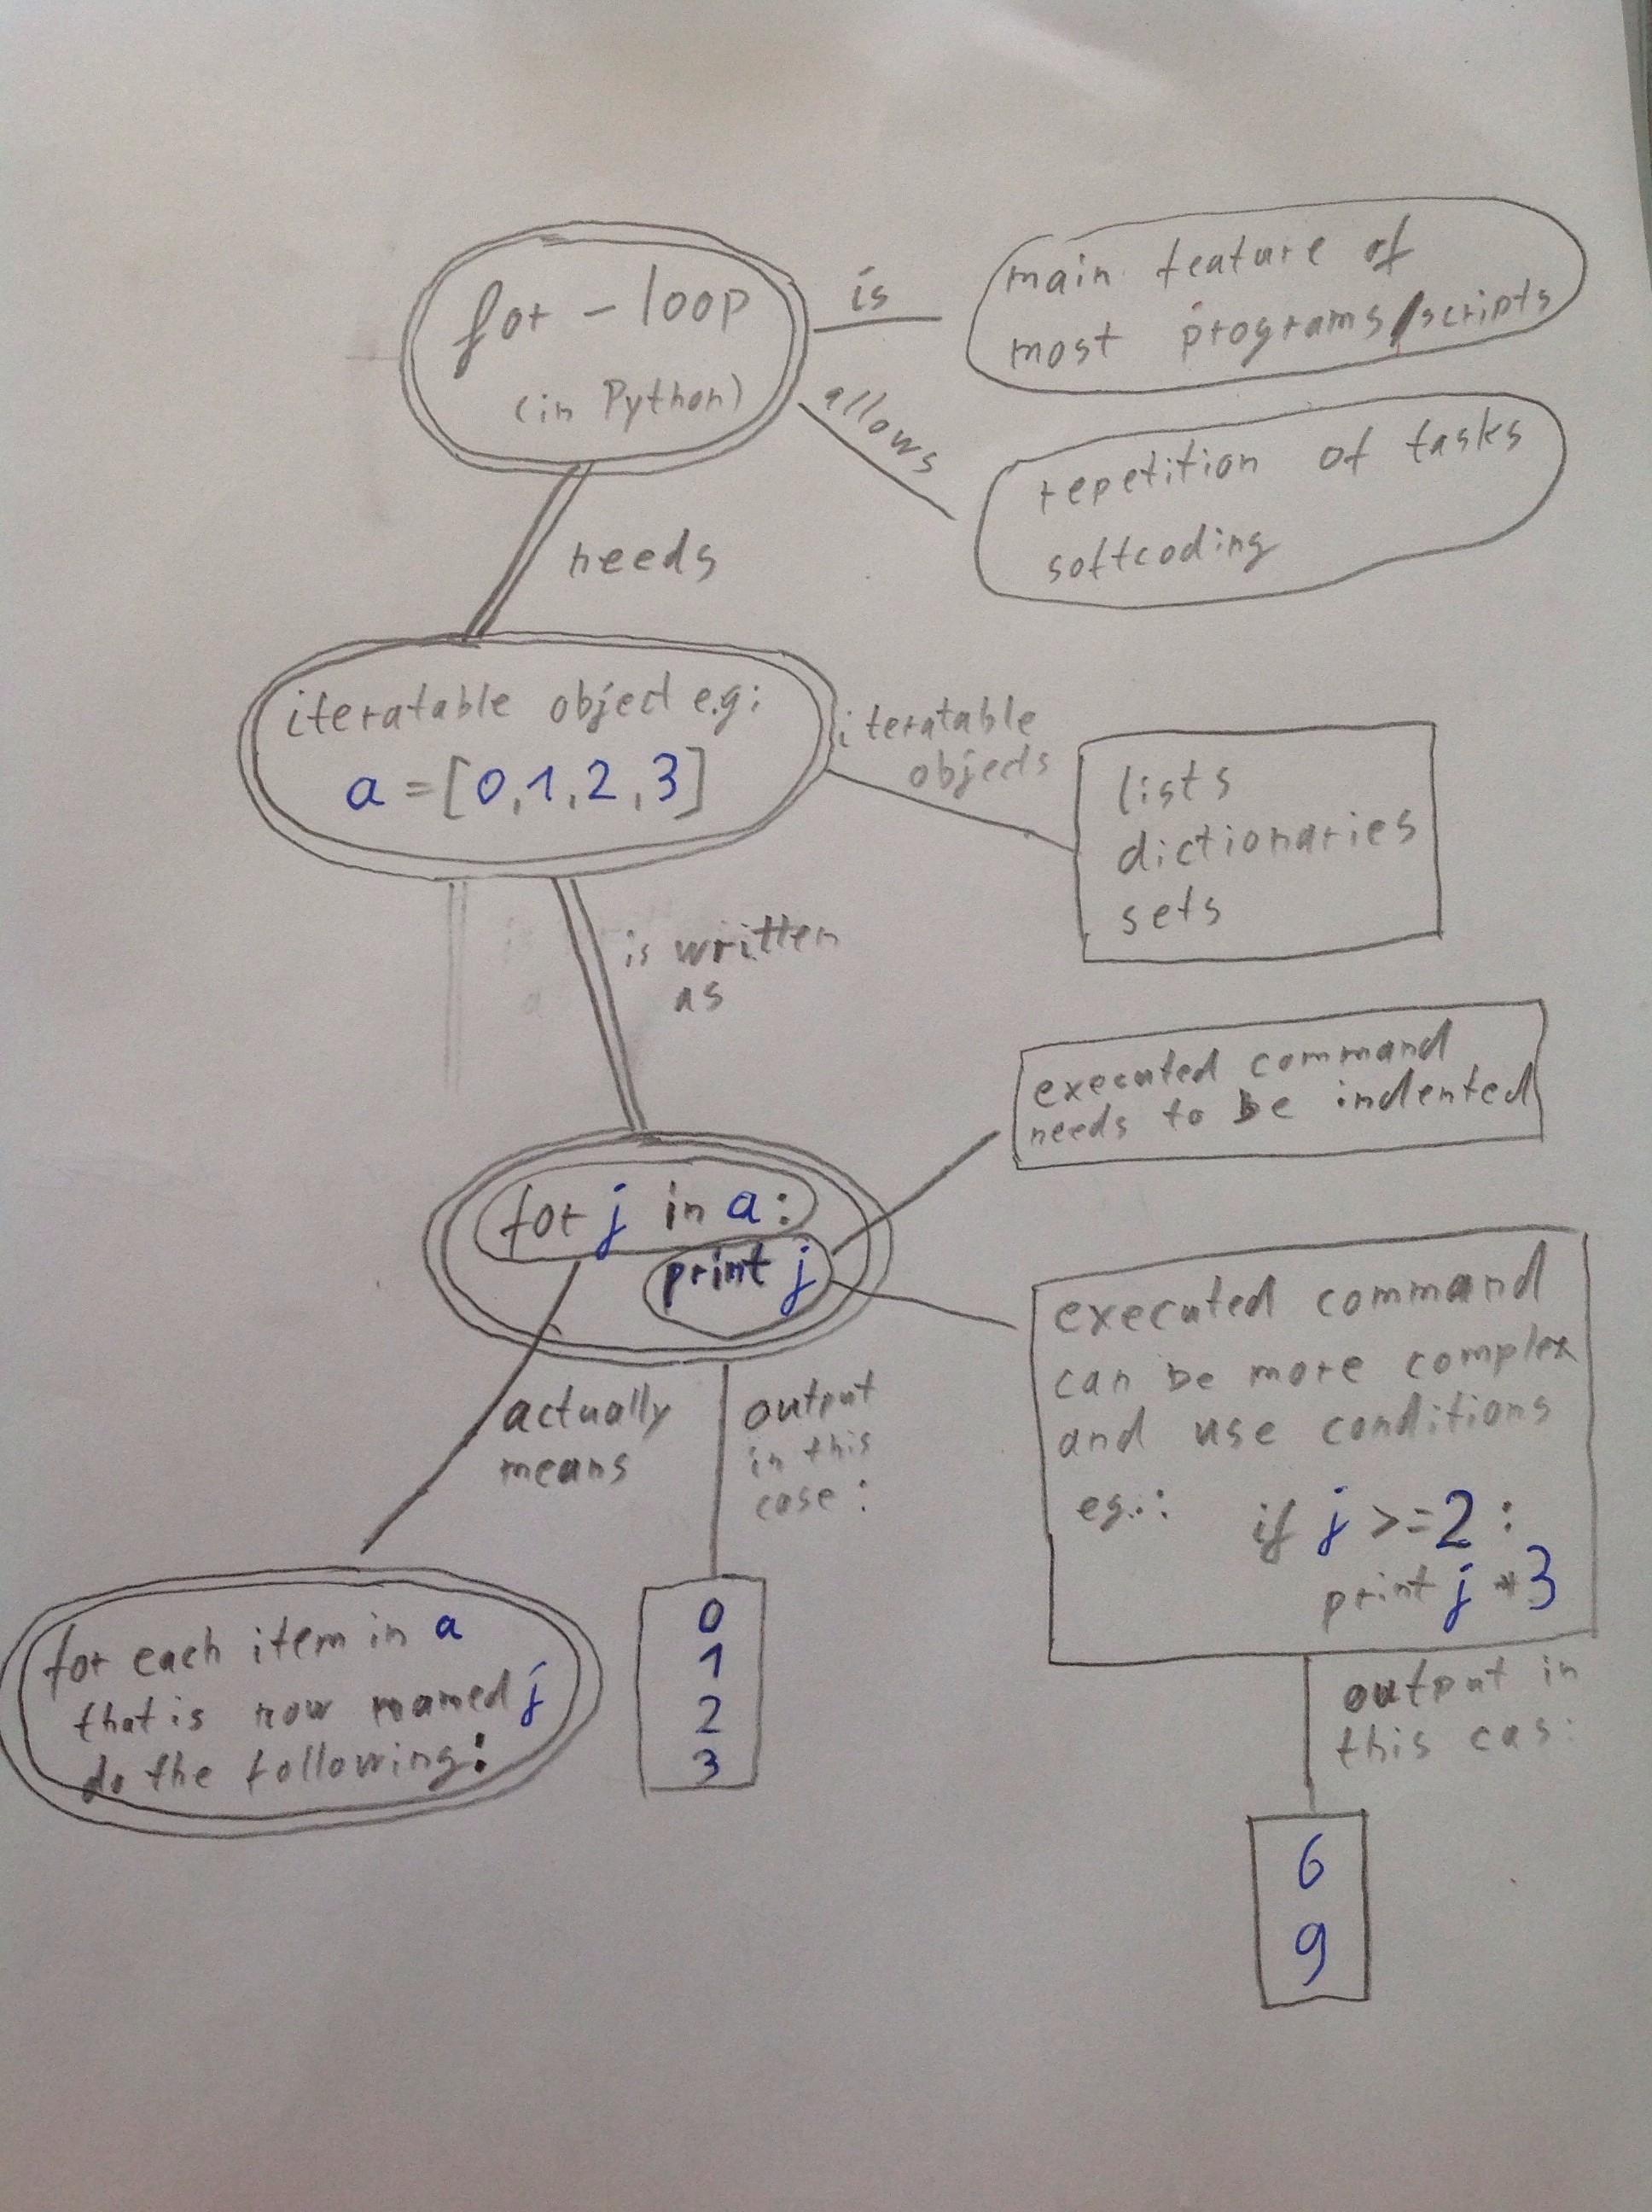 for - loop
(in Python)
is
main feature of
most programs/scripts
allows
repetition of tasks
softcoding
needs
iteratable object e.g:
a = [0,1,2,3]
iteratable
objects
lists
dictionaries
sets
is written
as
executed command
needs to be indented
for j in a:
print j
executed command
can be more complex
and use conditions
eg.: if j >= 2 :
print j * 3
actually
means
output
in this
case:
for each item in a
that is now named j
do the following:
0
1
2
3
output in
this cas:
6
9